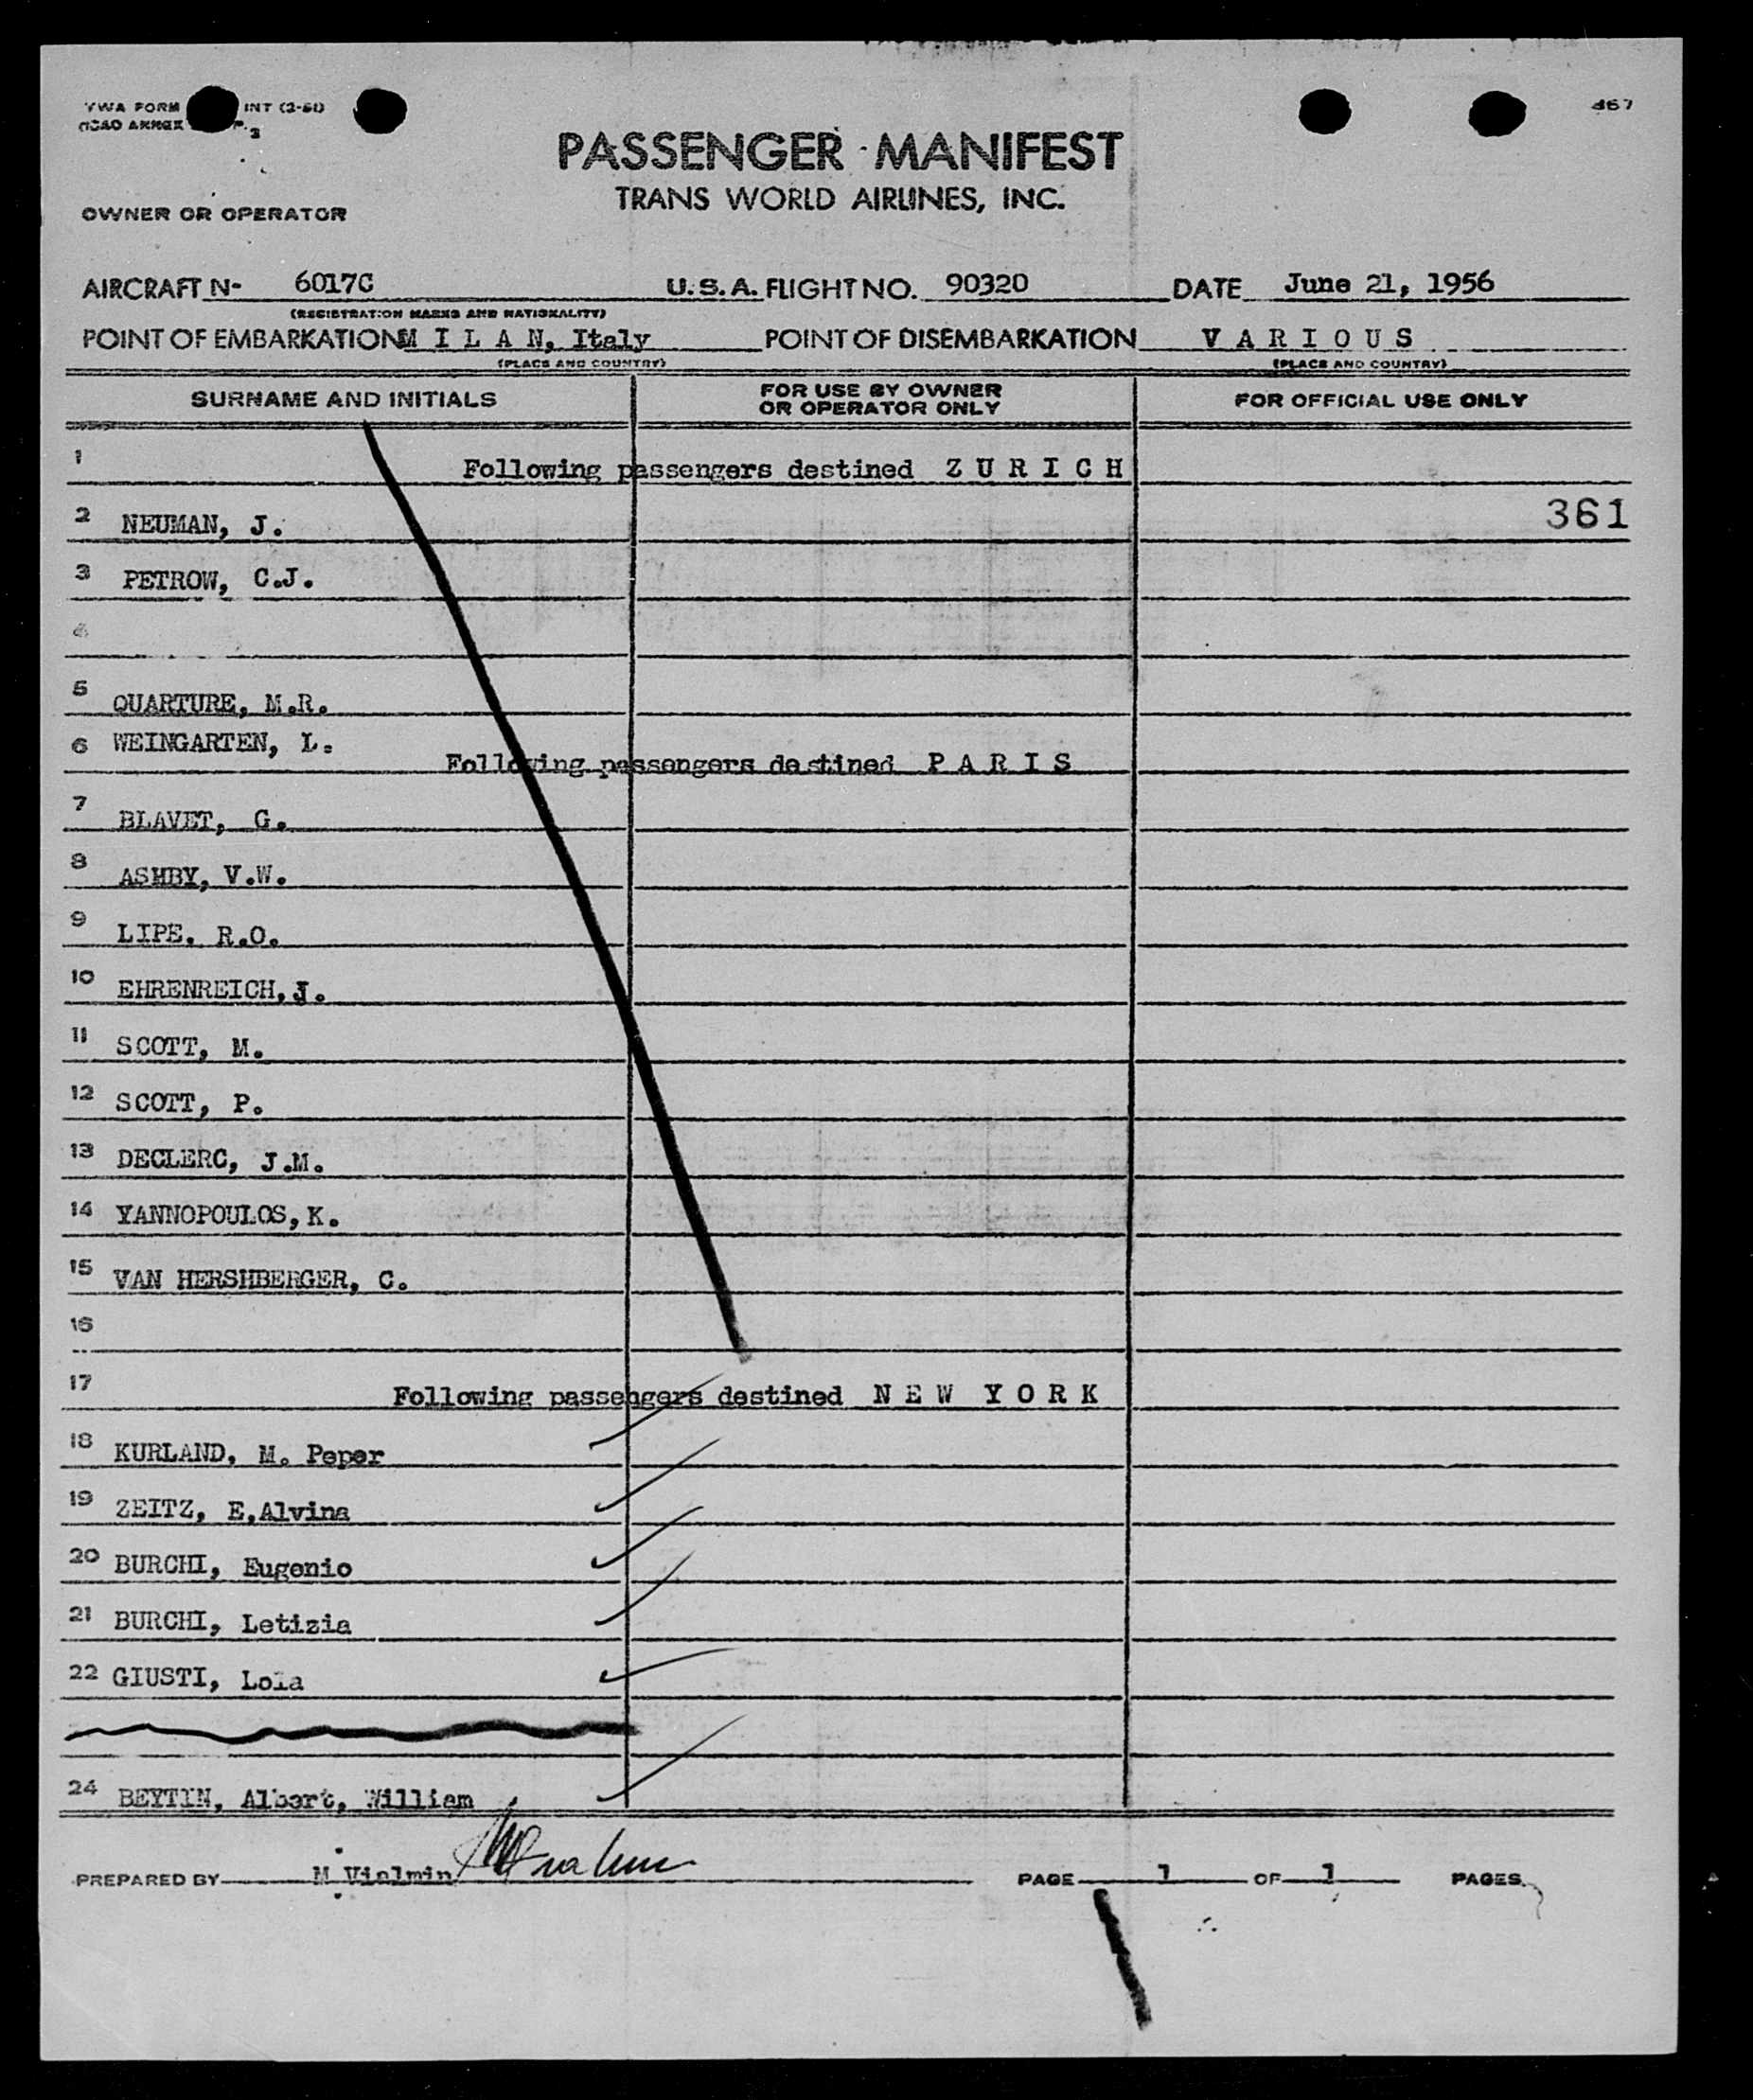 TWA FORM INT (2-51)
ICAO ANNEX P. 3
467
PASSENGER MANIFEST
TRANS WORLD AIRLINES, INC.
OWNER OR OPERATOR
AIRCRAFT N- 6017C U.S.A. FLIGHT NO. 90320 DATE June 21, 1956
(REGISTRATION MARKS AND NATIONALITY)
POINT OF EMBARKATION M I L A N, Italy POINT OF DISEMBARKATION V A R I O U S
(PLACE AND COUNTRY) (PLACE AND COUNTRY)
SURNAME AND INITIALS FOR USE BY OWNER OR OPERATOR ONLY FOR OFFICIAL USE ONLY
1 Following passengers destined Z U R I C H
2 NEUMAN, J. 361
3 PETROW, C.J.
4
5 QUARTURE, M.R.
6 WEINGARTEN, L.
Following passengers destined P A R I S
7 BLAVET, G.
8 ASHBY, V.W.
9 LIPE, R.O.
10 EHRENREICH, J.
11 SCOTT, M.
12 SCOTT, P.
13 DECLERC, J.M.
14 YANNOPOULOS, K.
15 VAN HERSHBERGER, C.
16
17 Following passengers destined N E W Y O R K
18 KURLAND, M. Peper
19 ZEITZ, E,Alvina
20 BURCHI, Eugenio
21 BURCHI, Letizia
22 GIUSTI, Lola
24 BEYTIN, Albert, William
PREPARED BY M Vialmin PAGE 1 OF 1 PAGES